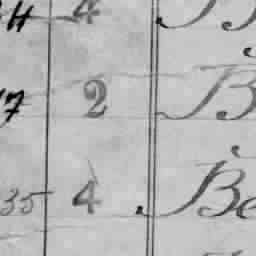 4 4 B
7 2 B
35 4 Be